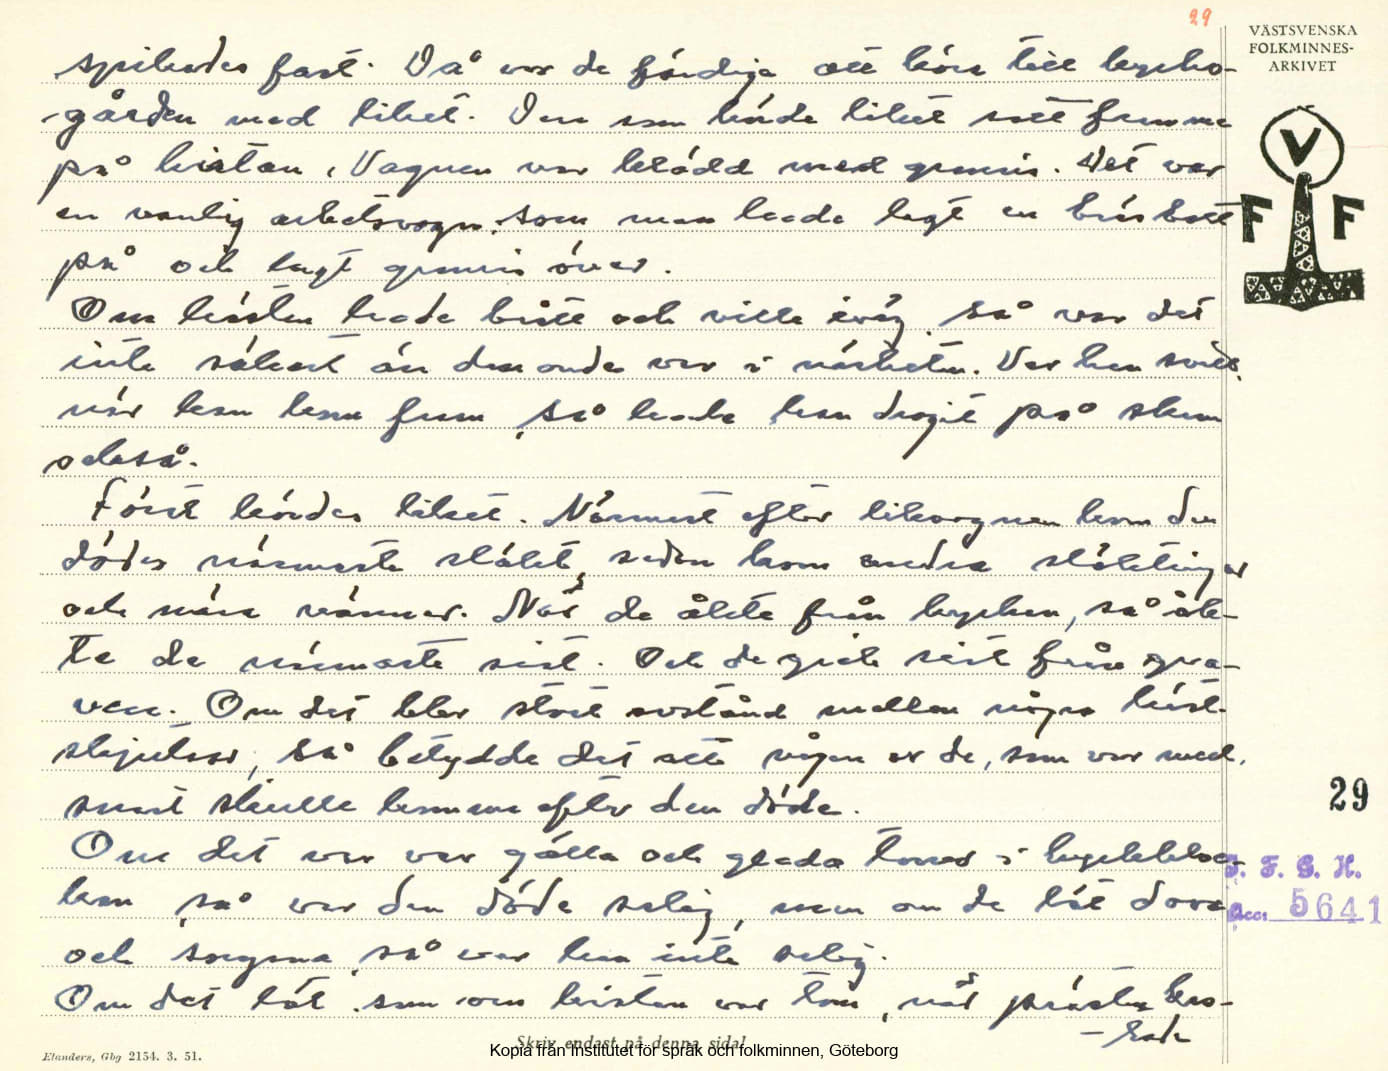 29
VÄSTSVENSKA
FOLKMINNES-
ARKIVET
spikades fast. Då var de färdiga att köra till kyrko-
gården med liket. Den som körde liket satt framme
på kistan. Vagnen var klädd med granris. Det var
en vanlig arbetsvagn, som man hade lagt en
på och lagt granris över.
Om hästen hade bitit och ville iväg, så var det
inte säkert än den onde var i närheten. Var han svett,
när han kom fram, så hade han dragit på skam
också.
Först kördes liket. Närmast efter likvagnen kom den
dödes närmaste släkt, sedan kom andra släktingar
och nära vänner. När de åkte från kyrkan, så åk-
te de närmaste sist. Och de gick sist från gra-
ven. Om det blev stort avstånd mellan några häst-
skjutsar, så betydde det att någon av de, som var med,
snart skulle komma efter den döde.
Om det var gälla och glada toner i kyrkkloc-
kan, så var den döde salig, men om de lät dova
och sorgsna, så var han inte salig.
Om det lät som om kistan var tom, när prästen kas-
- tade
V
F F
29
I. F. G. H.
Acc. 5641
Skriv endast på denna sida!
Elanders, Gbg 2154. 3. 51.
Kopia från Institutet för språk och folkminnen, Göteborg